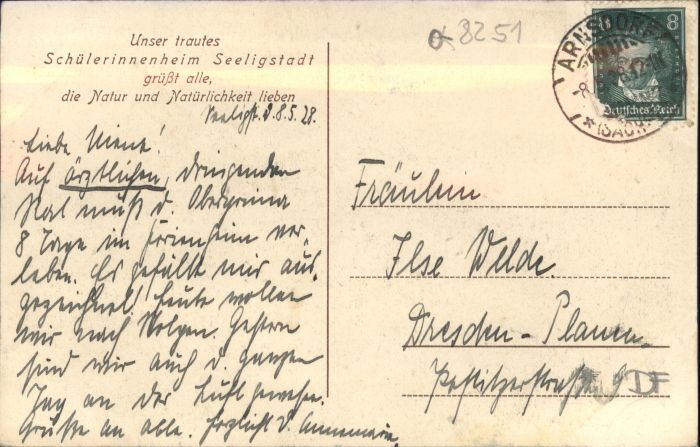 Unser trautes
Schülerinnenheim Seeligstadt
grüßt alle,
die Natur und Natürlichkeit lieben
Seeligst. d. 8.5.28.
Liebe Miene!
Auf ärztlichen, dringenden
Rat muß d. Oberprima
8 Tage im Ferienheim ver-
leben. Es gefällt mir aus-
gezeichnet! Heute wollen
wir nach Stolpen. Gestern
sind wir auch d. ganzen
Tag an der Luft gewesen.
Grüße an alle. Herzlichst D. Annemarie.
α 8251
ARNSDORF
(SACHS.)
8
Deutsches Reich
Fräulein
Ilse Welde.
Dresden-Plauen.
DF